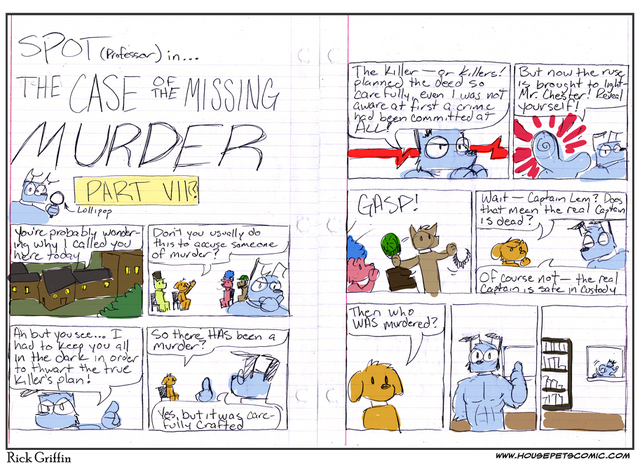 SPOT (Professor) in...
THE CASE OF THE MISSING
MURDER
PART VII?
Lollipop
You're probably wonder-
ing why I called you
here today
Don't you usually do
this to accuse someone
of murder?
Ah but you see... I
had to keep you all
in the dark in order
to thwart the true
killer's plan!
So there HAS been a
murder?
Yes, but it was care-
fully crafted
The killer — or killers!
planned the deed so
carefully, even I was not
aware at first a crime
had been committed at
ALL!
But now the ruse
is brought to light-
Mr. Chester! Reveal
yourself!
GASP!
Wait — Captain Lem? Does
that mean the real Captain
is dead?
Of course not — the real
Captain is safe in custody
Then who
WAS murdered?
Rick Griffin
WWW.HOUSEPETSCOMIC.COM